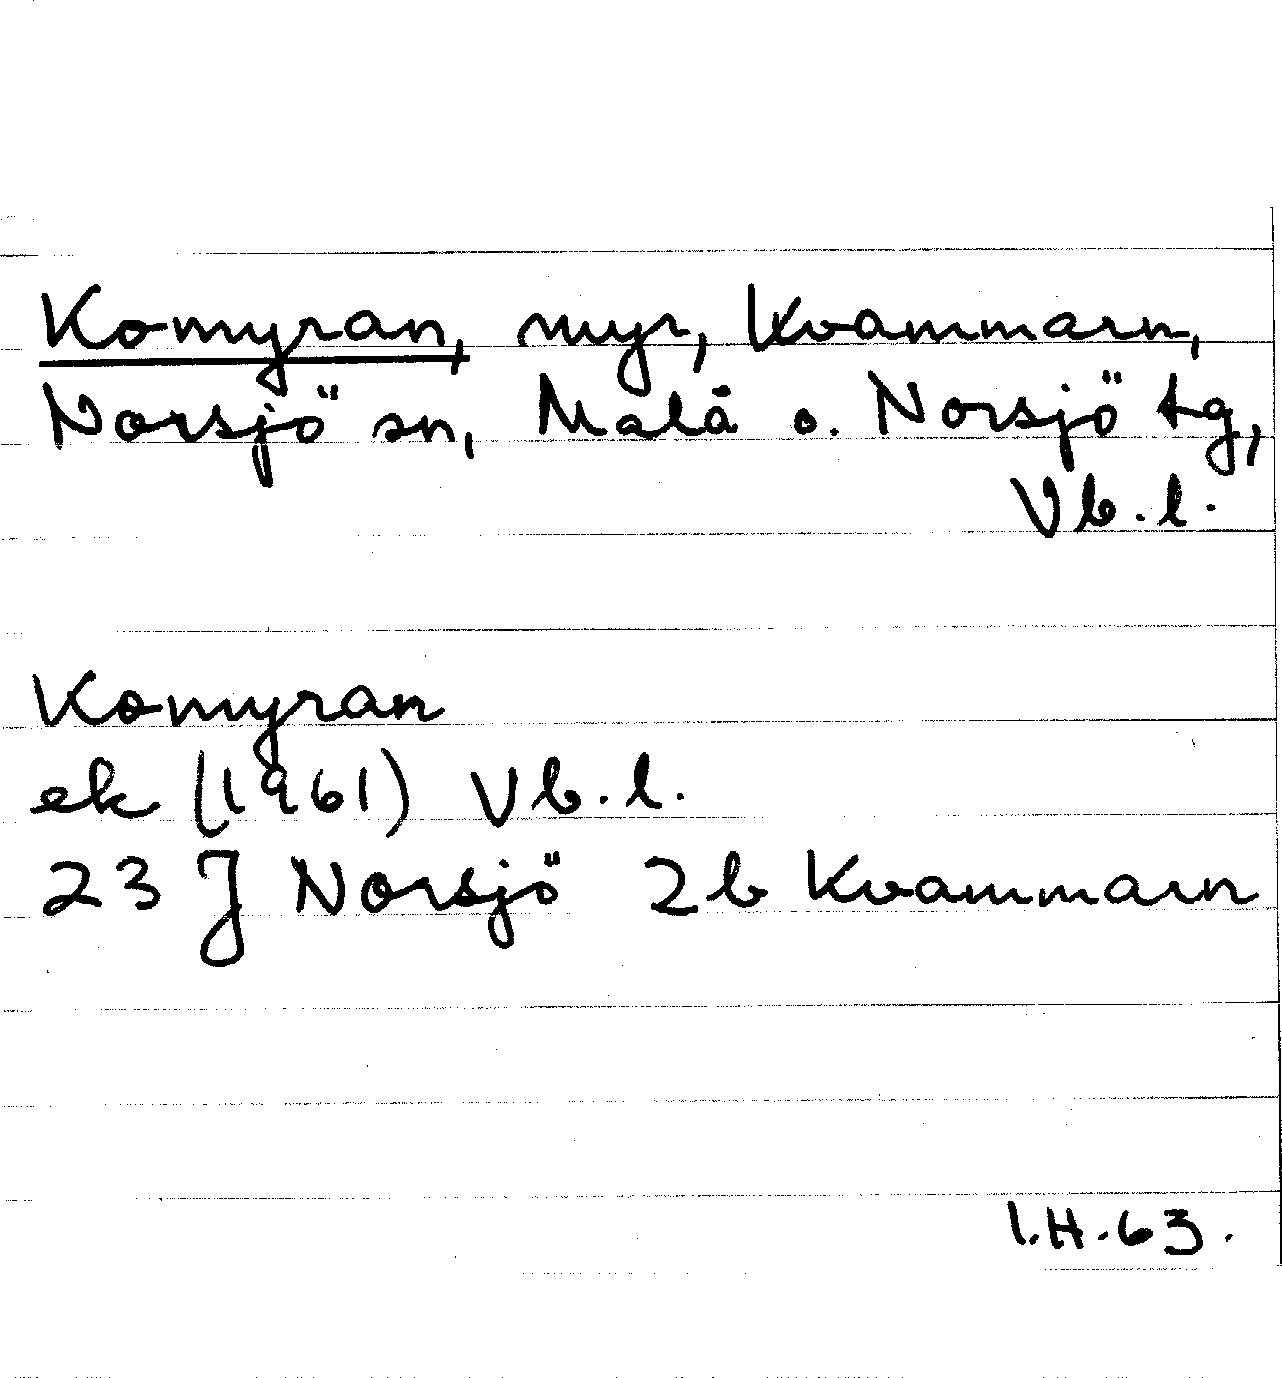 Komyran, myr, Kvammarn,
Norsjö sn, Malå o. Norsjö tg,
Vb.l.
Komyran
ek (1961) Vb.l.
23 J Norsjö 2b Kvammarn
I.H.63.